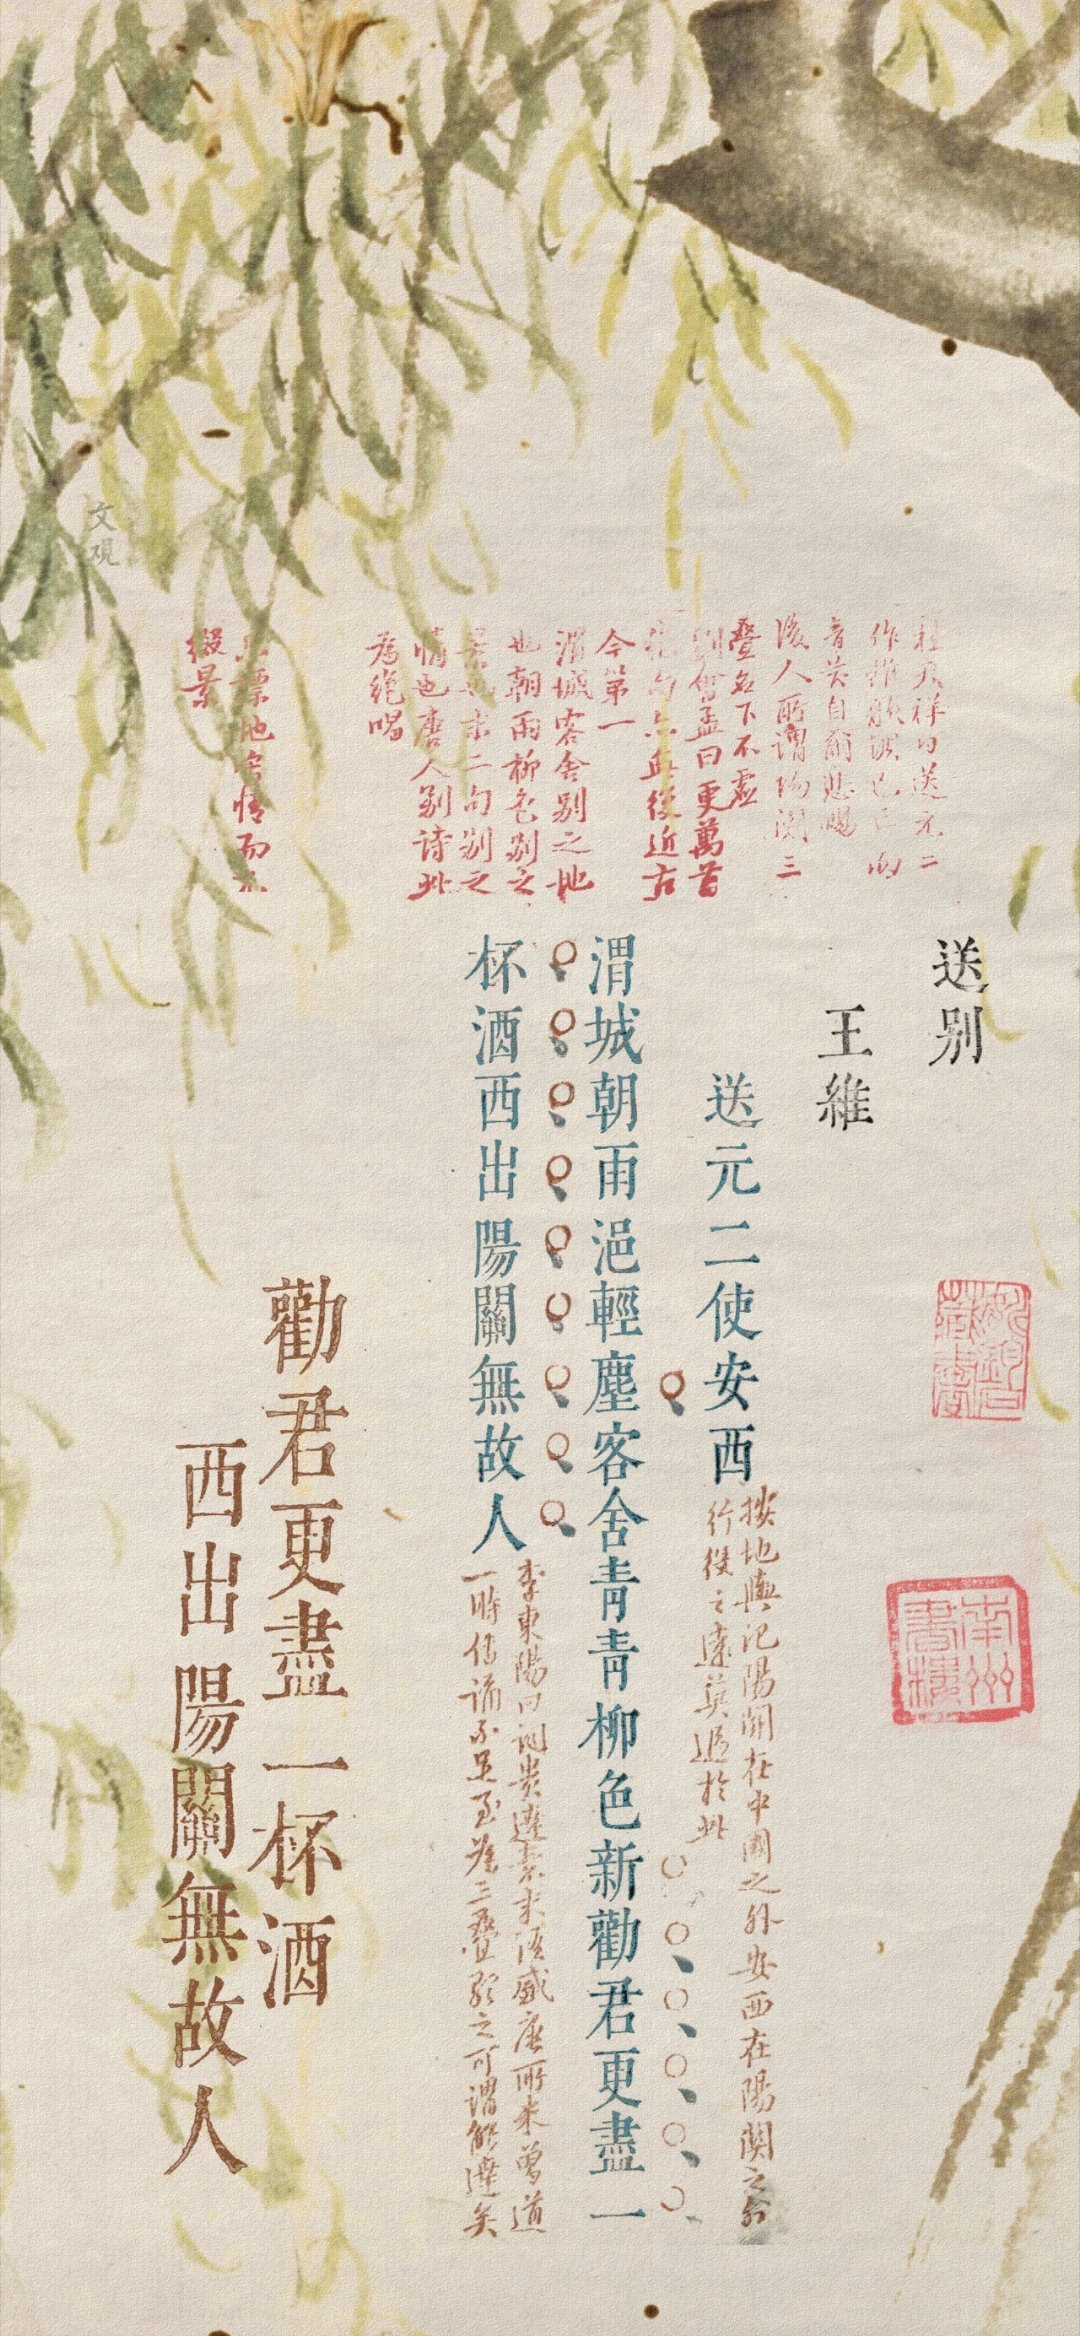 送別
王維
送元二使安西
按地輿記陽關在中國之外安西在陽關之外
行役之遠莫過於此
渭城朝雨浥輕塵客舍青青柳色新勸君更盡一
杯酒西出陽關無故人
李東陽曰詞貴達意未語盛唐所未曾道
一時傳誦不足至爲三疊歌之可謂能達矣
後人所謂陽關三
疊名下不虛
劉會孟曰更萬首
絕句亦無復近古
今第一
渭城客舍別之地
也朝雨柳色別之
景也末二句別之
情也唐人別詩此
爲絕唱
綴景
勸君更盡一杯酒
西出陽關無故人
南州
書樓
文觀